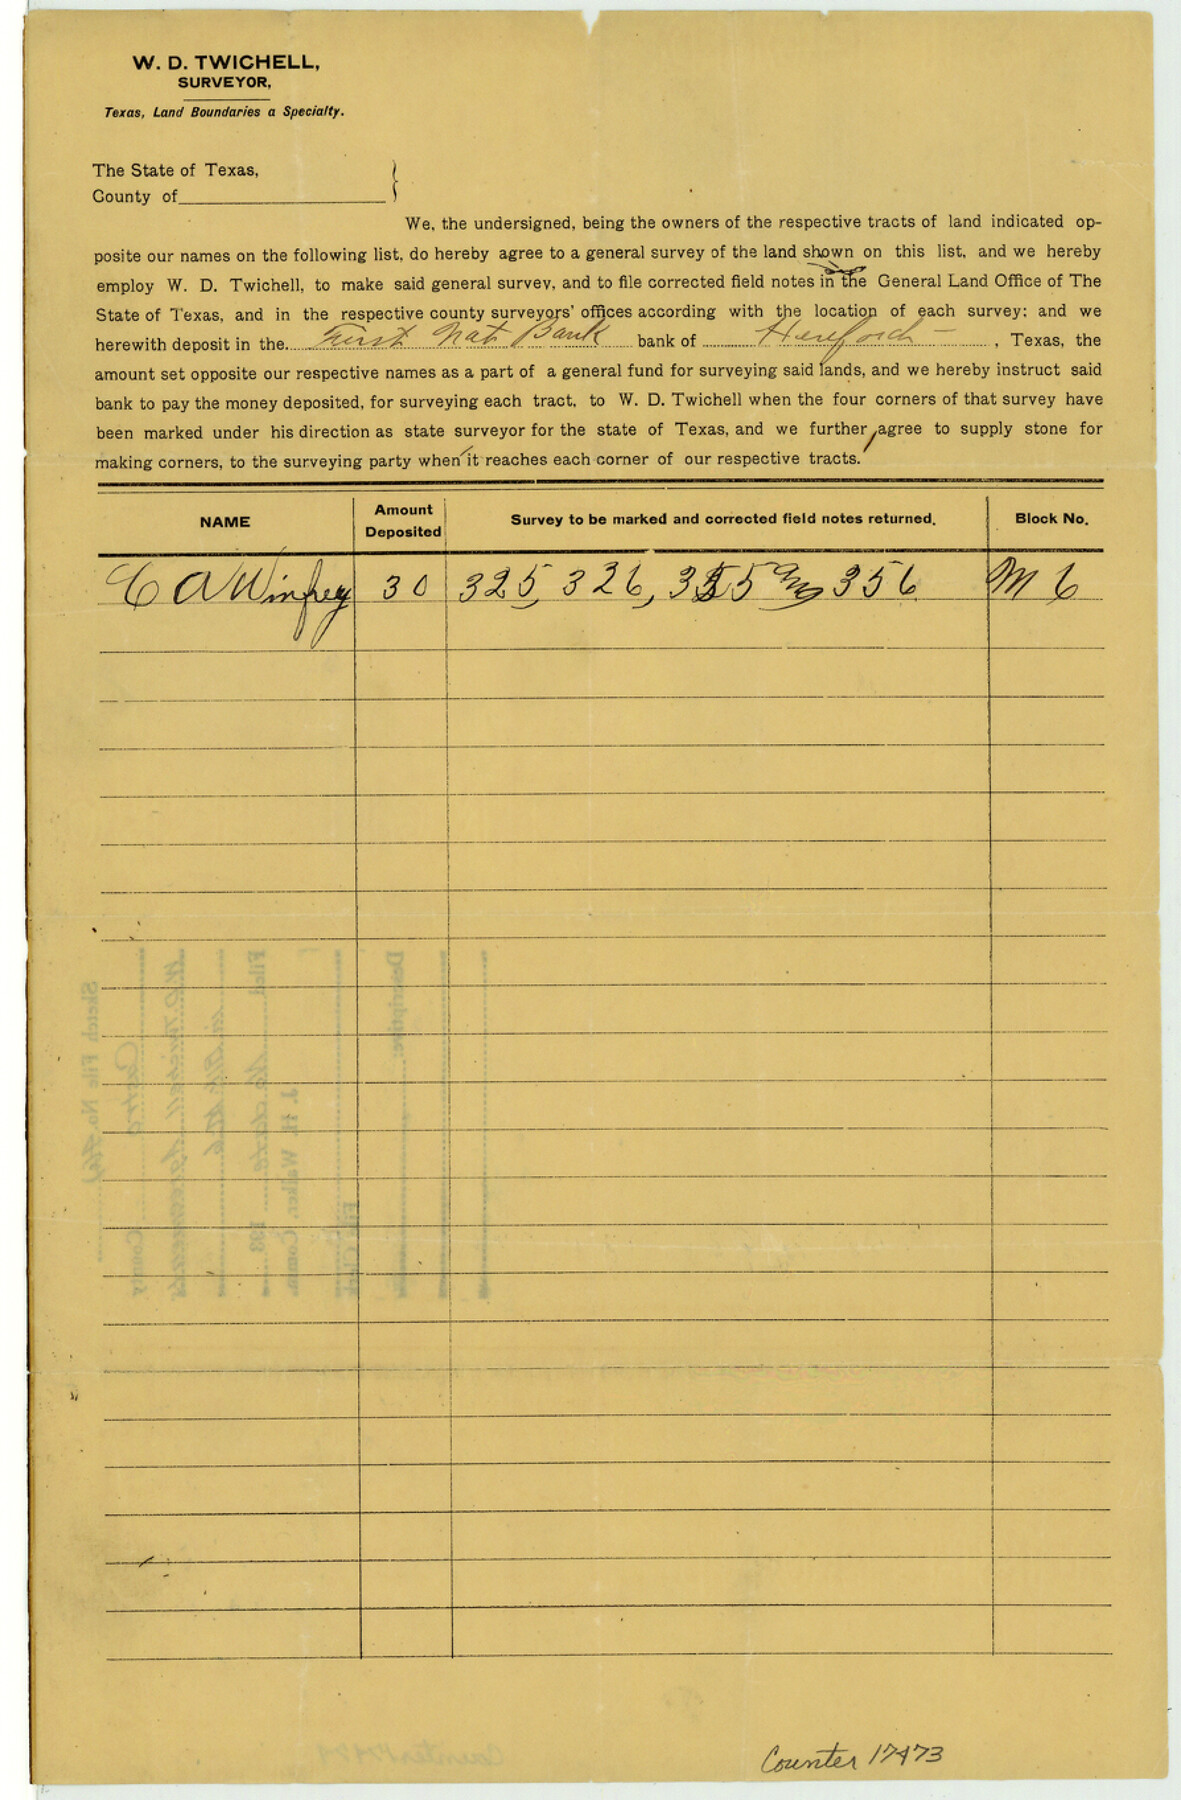 W. D. TWICHELL,
SURVEYOR,
Texas, Land Boundaries a Specialty.
The State of Texas,
County of
We, the undersigned, being the owners of the respective tracts of land indicated op-
posite our names on the following list, do hereby agree to a general survey of the land shown on this list, and we hereby
employ W. D. Twichell, to make said general survey, and to file corrected field notes in the General Land Office of The
State of Texas, and in the respective county surveyors' offices according with the location of each survey; and we
herewith deposit in the First Nat Bank bank of Hereford, Texas, the
amount set opposite our respective names as a part of a general fund for surveying said lands, and we hereby instruct said
bank to pay the money deposited, for surveying each tract, to W. D. Twichell when the four corners of that survey have
been marked under his direction as state surveyor for the state of Texas, and we further agree to supply stone for
making corners, to the surveying party when it reaches each corner of our respective tracts.
NAME Amount Deposited Survey to be marked and corrected field notes returned. Block No.
C A Winfrey 30 325, 326, 355 and 356 M 6
Sketch File No.
Castro County
W.D. Twichell Agreement
Filed No date 193
J. H. Walker, Comm.
File Clerk
Descriptive:
Counter 17474
Counter 17473